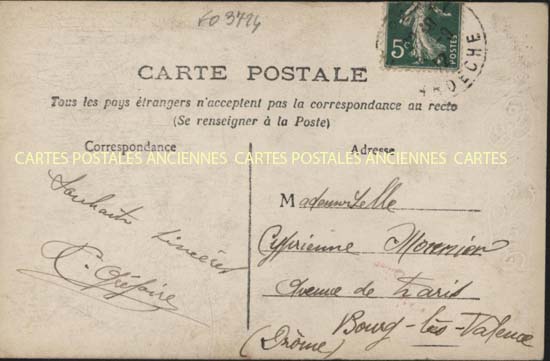 CARTE POSTALE
Tous les pays étrangers n'acceptent pas la correspondance au recto
(Se renseigner à la Poste)
Correspondance
Adresse
CARTES POSTALES ANCIENNES CARTES POSTALES ANCIENNES CARTES
5c POSTES
ARDECHE
Souhaits sincères
Mademoiselle
Cyprienne
Avenue de Paris
Bourg-lès-Valence
(Drôme)